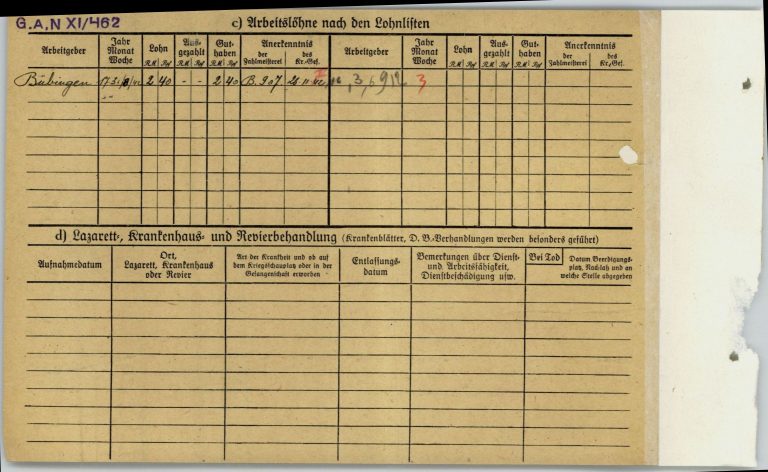 G.A,N XI/462
c) Arbeitslöhne nach den Lohnlisten
Arbeitgeber Jahr Monat Woche Lohn RM Rpf Ausgezahlt RM Rpf Guthaben RM Rpf Anerkenntnis der Zahlmeisterei des Kr.-Gef. Arbeitgeber Jahr Monat Woche Lohn RM Rpf Ausgezahlt RM Rpf Guthaben RM Rpf Anerkenntnis der Zahlmeisterei des Kr.-Gef.
Bübingen 2 40 - - 2 40 B. 907 3
d) Lazarett-, Krankenhaus- und Revierbehandlung (Krankenblätter, D. B.-Verhandlungen werden besonders geführt)
Aufnahmedatum Ort, Lazarett, Krankenhaus oder Revier Art der Krankheit und ob auf dem Kriegsschauplatz oder in der Gefangenschaft erworben Entlassungsdatum Bemerkungen über Dienst- und Arbeitsfähigkeit, Dienstbeschädigung usw. Bei Tod Datum Beerdigungsplatz, Nachlaß und an welche Stelle abgegeben